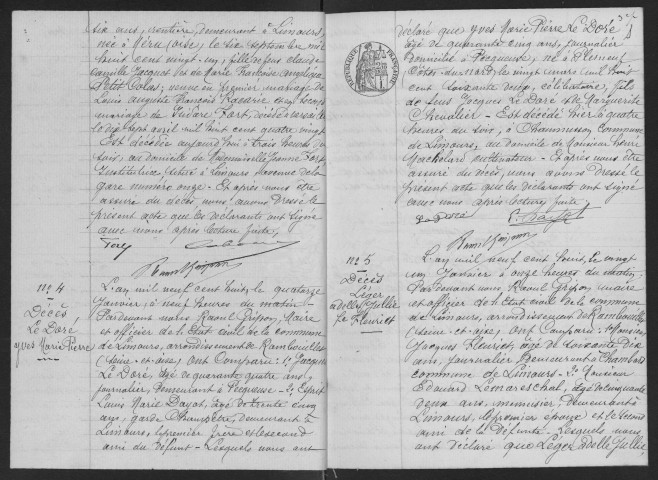 six ans, rentière, demeurant à Limours,
née à Méru (Oise) le six septembre mil
huit cent vingt un, fille de feus Claude
Camille Jacquet et de Marie Françoise Angélique
Petit Colas; veuve en premier mariage de
Louis Auguste François et en second
mariage de Isidore Fort, décédé à
le dix sept avril mil huit cent quatre vingt
Est décédée aujourd'hui à trois heures du
soir, au domicile de Mademoiselle Jeanne Fort
Institutrice, situé à Limours avenue de la
gare numéro onze. Et après nous être
assuré du décès, nous avons dressé le
présent acte que les déclarants ont signé
avec nous après lecture faite.
No 4
Décès
Le Doré
Yves Marie Pierre
L'an mil neuf cent huit, le quatorze
Janvier, à neuf heures du matin
Pardevant nous Raoul Grison, Maire
et officier de l'Etat civil de la commune
de Limours, arrondissement de Rambouillet
(Seine et Oise) ont comparu: 1° Jacques
Le Doré, âgé de quarante quatre ans,
journalier, demeurant à Pecqueuse - 2° Esprit
Louis Marie Dayot, âgé de trente cinq
ans, garde champêtre, demeurant à
Limours, le premier frère et le second
ami du défunt - Lesquels nous ont
déclaré que Yves Marie Pierre Le Doré
âgé de quarante cinq ans, journalier
domicilié à Pecqueuse, né à
Côtes du Nord, le vingt mars mil huit
cent soixante deux, célibataire, fils
de feus Jacques Le Doré et de Marguerite
Chevalier - Est décédé hier à quatre
heures du soir, à Chaumusson commune
de Limours, au domicile de Monsieur Henri
cultivateur - Et après nous être
assuré du décès, nous avons dressé le
présent acte que les déclarants ont signé
avec nous après lecture faite.
RÉPUBLIQUE FRANÇAISE
No 5
Décès
Léger
Adèle Jullie
Ve Fleuriet
L'an mil neuf cent huit, le vingt
un Janvier à onze heures du matin,
Pardevant nous Raoul Grison, maire
et officier de l'Etat civil de la commune
de Limours, arrondissement de Rambouillet
(Seine et Oise) ont comparu: 1° Monsieur
Jacques Fleuriet, âgé de soixante dix
ans, journalier, demeurant à Chambord
commune de Limours - 2° Monsieur
Edouard Lemareschal, âgé de cinquante
deux ans, menuisier, demeurant à
Limours, le premier époux et le second
ami de la défunte. Lesquels nous
ont déclaré que Léger Adèle Jullie,